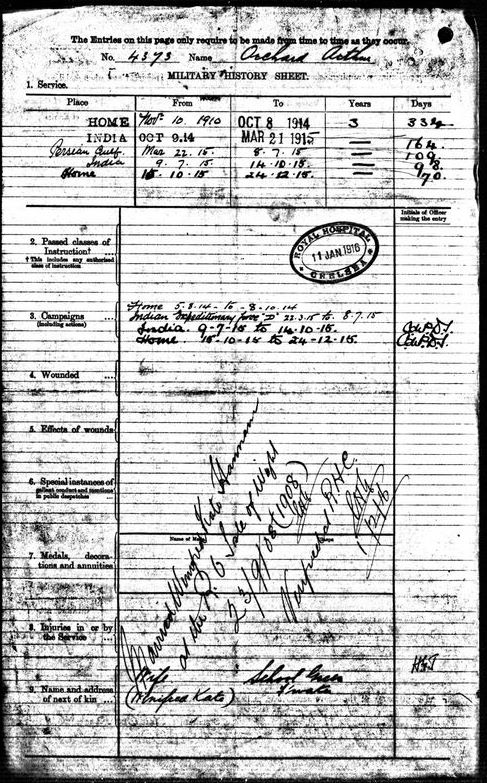 The Entries on this page only require to be made from time to time as they occur.
No. 4373 Name Orchard Arthur
MILITARY HISTORY SHEET.
1. Service.
Place From To Years Days
HOME Novr 10. 1910 OCT 8 1914 3 334
INDIA OCT 9.14 MAR 21 1915 — 164
Persian Gulf. Mar 22.15. 8.7.15 — 109
India 9.7.15 14.10.15. — 98
Home 15.10.15 24.12.15. — 70
Initials of Officer
making the entry
2. Passed classes of
Instruction† ...
† This includes any authorised
class of instruction
ROYAL HOSPITAL
11 JAN 1916
CHELSEA
3. Campaigns ...
(including actions)
Home 5.8.14 to 8.10.14
Indian Expeditionary Force "D" 22.3.15 to 8.7.15
India 9-7-15 to 14-10-15.
Home. 15-10-15 to 24-12-15.
4. Wounded ...
5. Effects of wounds
6. Special instances of
gallant conduct and mentions
in public despatches
7. Medals, decora-
tions and annuities
Married Winifred Kate
at the R.O Isle of Wight
23/9/08 (1908)
8. Injuries in or by
the Service ...
9. Name and address
of next of kin ...
Wife
(Winifred Kate)
School Green